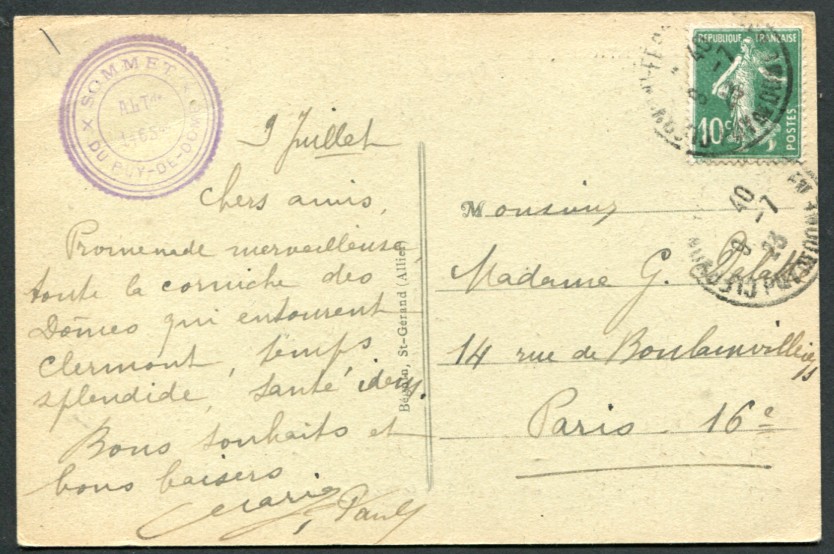 SOMMET
ALTde
1465m
DU PUY-DE-DOME
9 Juillet
Chers amis,
Promenade merveilleuse,
toute la corniche des
Dômes qui entourent
Clermont, temps
splendide, santé idem.
Bons souhaits et
bons baisers
Marie, Paul
St-Gérand (Allier)
REPUBLIQUE FRANÇAISE
10c
POSTES
9 40
-7
23
Monsieur
Madame G.
14 rue de Boulainvilliers
Paris - 16e